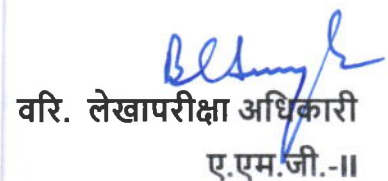 वरि. लेखापरीक्षा अधिकारी
ए.एम.जी.-II